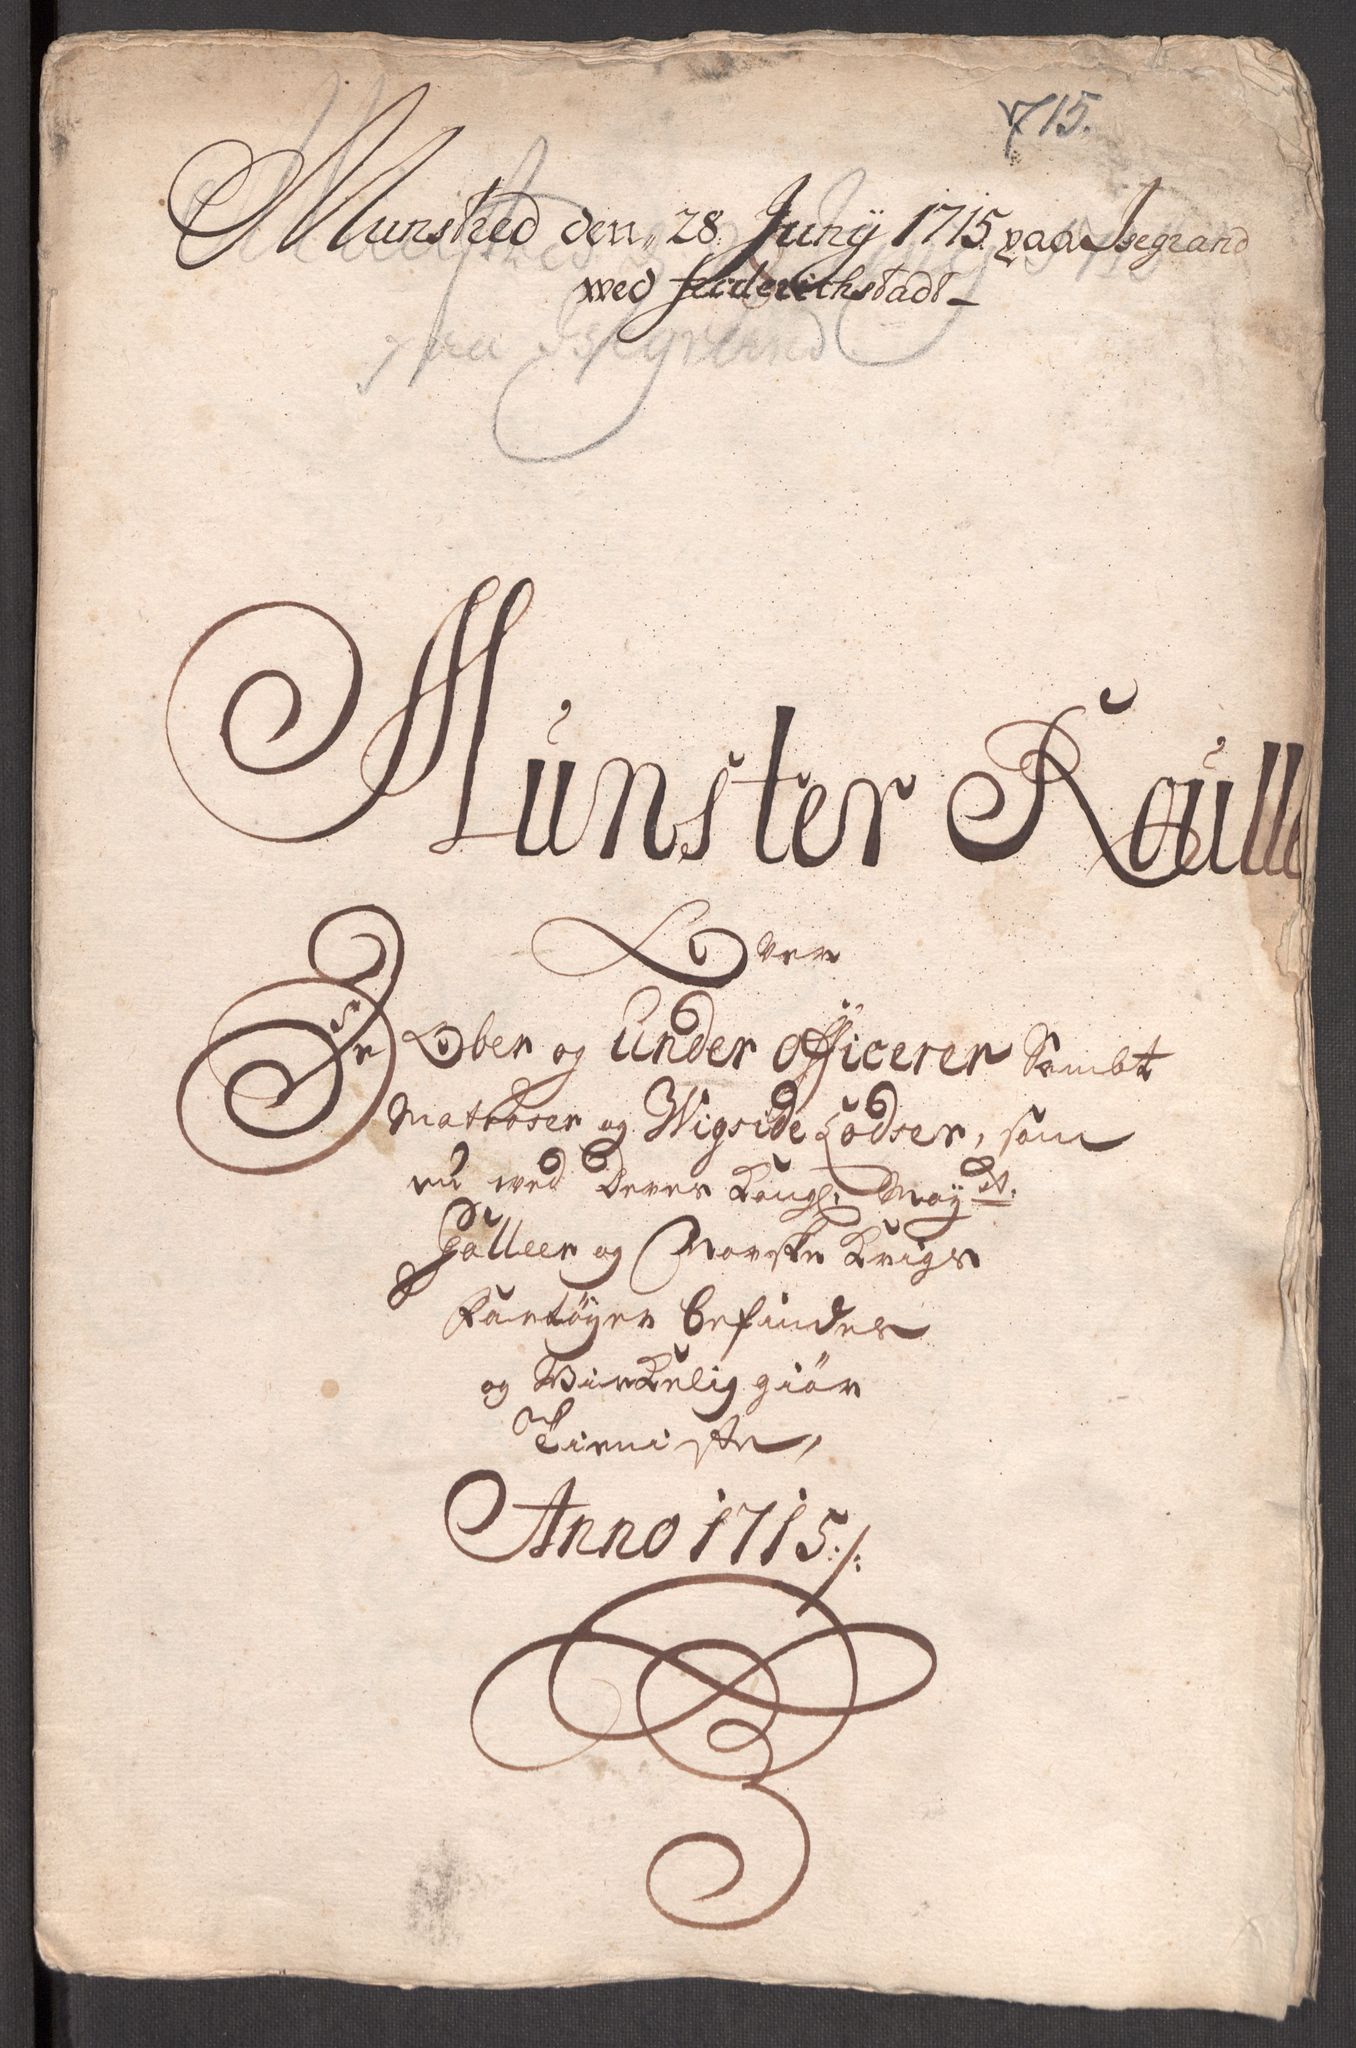 715.
Munstred den 28 Junij 1715 paa Isegrand
wed friderichstadt
paa Isegrand
Munster Roulle
Over
De Ober og Under Officerer Sambt
Matroser og Wigside Lodser, som
nu wed Deres Kongl. May. tt.
Galleer og Norske Krigs
Fartöyer befindes
og Virkelig giör
Tieniste,
Anno 1715 ./.